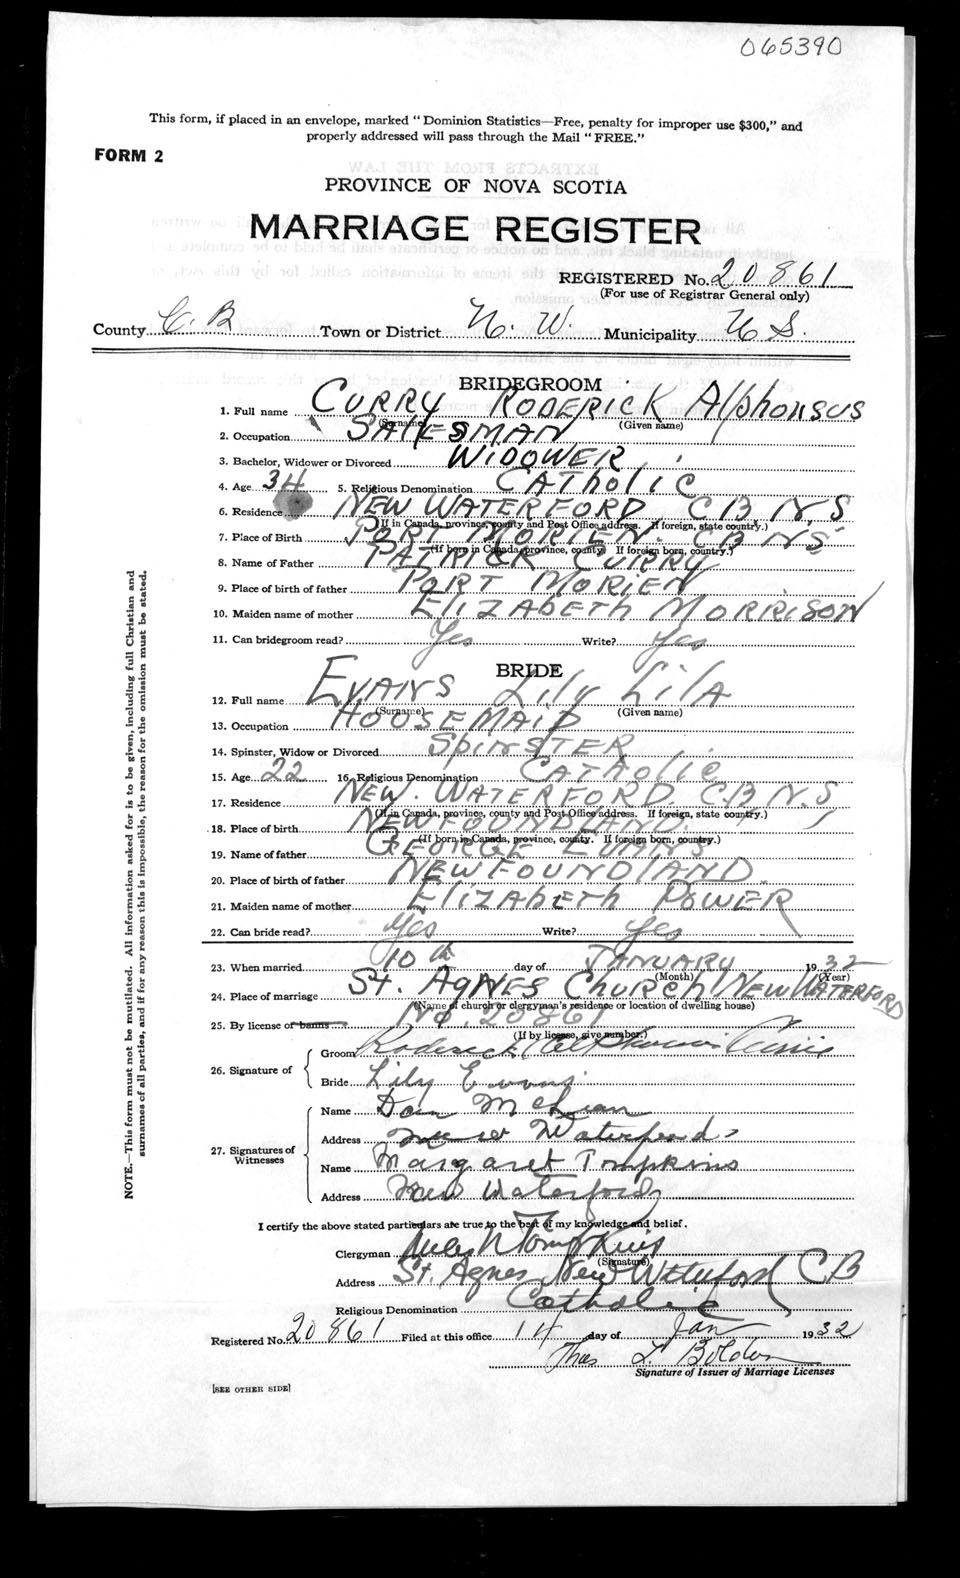 065390
This form, if placed in an envelope, marked "Dominion Statistics—Free, penalty for improper use $300," and
properly addressed will pass through the Mail "FREE."
FORM 2
PROVINCE OF NOVA SCOTIA
MARRIAGE REGISTER
REGISTERED No. 20861
(For use of Registrar General only)
County C. B Town or District N. W. Municipality N S.
BRIDEGROOM
1. Full name CURRY RODERICK Alphonsus
(Surname) (Given name)
2. Occupation SALESMAN
3. Bachelor, Widower or Divorced WIDOWER
4. Age 34 5. Religious Denomination CATholic
6. Residence NEW WATERFORD CB N.S
(If in Canada, province, county and Post Office address. If foreign, state country.)
7. Place of Birth PORT MORIEN. CB NS
(If born in Canada, province, county. If foreign born, country.)
8. Name of Father PATRICK CURRY
9. Place of birth of father PORT MORIEN
10. Maiden name of mother ElizAbeth MORRISON
11. Can bridegroom read? Yes Write? Yes
BRIDE
12. Full name EVANS Lily LilA
(Surname) (Given name)
13. Occupation HOUSEMAID
14. Spinster, Widow or Divorced SpiNSTER
15. Age 22 16. Religious Denomination CATholic
17. Residence NEW. WATERFORD. C.B N.S
(If in Canada, province, county and Post Office address. If foreign, state country.)
18. Place of birth NEWFOUNDLAND.
(If born in Canada, province, county. If foreign born, country.)
19. Name of father GEORGE EVANS
20. Place of birth of father NEWFOUNDlAND
21. Maiden name of mother ElizAbETh POWER
22. Can bride read? Yes Write? Yes
23. When married 10th day of JANUARY 1932
(Month) (Year)
24. Place of marriage St. AgNES Church NEW WATERFORD
(Name of church or clergyman's residence or location of dwelling house)
25. By license or banns No. 20861
(If by license, give number.)
26. Signature of Groom Roderick Alphonsus Currie
Bride Lily Evans
27. Signatures of Witnesses Name Dan McLean
Address New Waterford
Name Margaret Tompkins
Address New Waterford
I certify the above stated particulars are true to the best of my knowledge and belief.
Clergyman Tompkins
(Signature)
Address St. Agnes New Waterford CB
Religious Denomination Catholic
Registered No. 20861 Filed at this office 14 day of Jan 1932
Thos
Signature of Issuer of Marriage Licenses
[SEE OTHER SIDE]
NOTE.—This form must not be mutilated. All information asked for is to be given, including full Christian and
surnames of all parties, and if for any reason this is impossible, the reason for the omission must be stated.